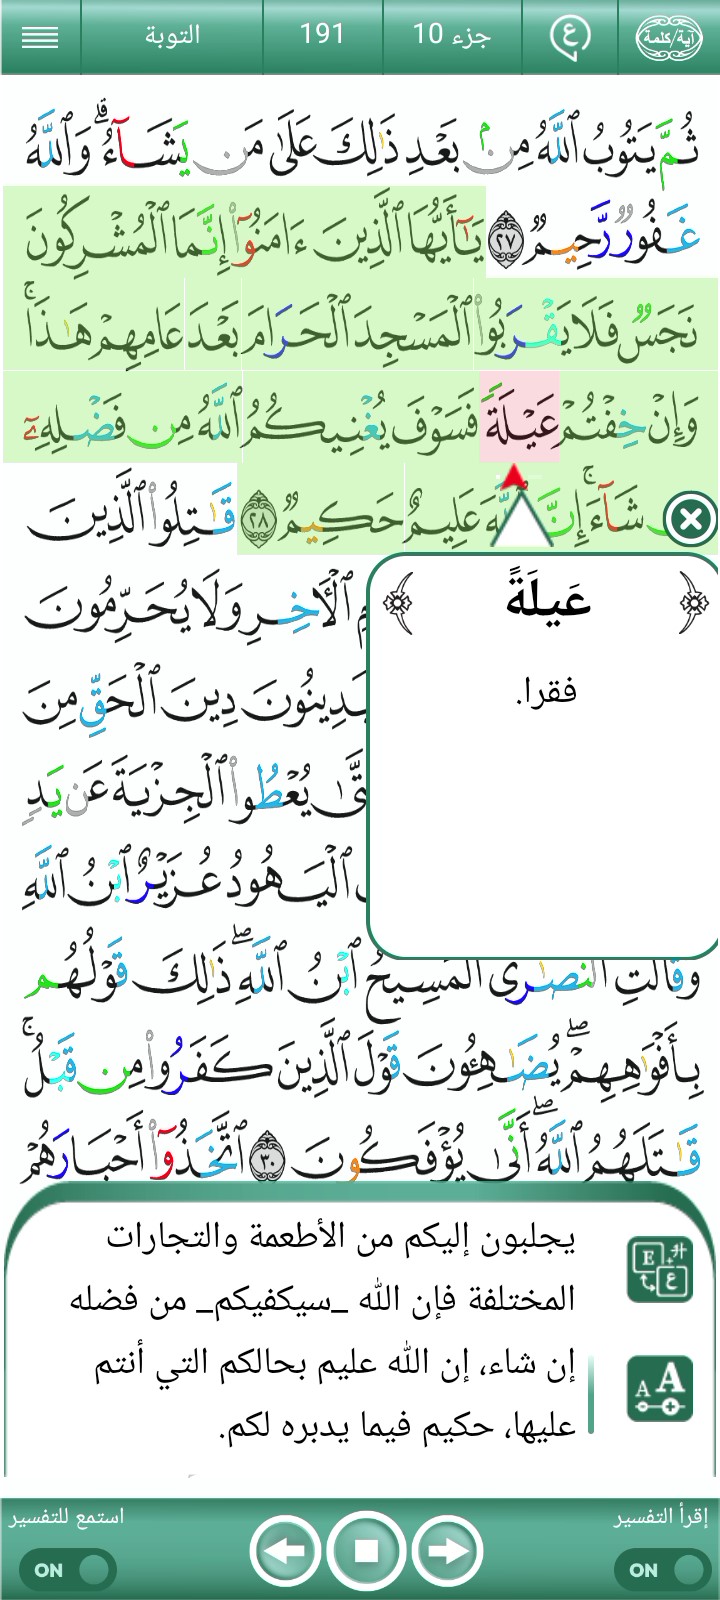 آية/كلمة
ع
جزء 10
191
التوبة
ثُمَّ يَتُوبُ ٱللَّهُ مِنۢ بَعْدِ ذَٰلِكَ عَلَىٰ مَن يَشَآءُۗ وَٱللَّهُ
غَفُورٌ رَّحِيمٌ ٢٧ يَٰٓأَيُّهَا ٱلَّذِينَ ءَامَنُوٓا۟ إِنَّمَا ٱلْمُشْرِكُونَ
نَجَسٌ فَلَا يَقْرَبُوا۟ ٱلْمَسْجِدَ ٱلْحَرَامَ بَعْدَ عَامِهِمْ هَٰذَاۚ
وَإِنْ خِفْتُمْ عَيْلَةً فَسَوْفَ يُغْنِيكُمُ ٱللَّهُ مِن فَضْلِهِۦٓ
شَآءَۚ إِنَّ ٱللَّهَ عَلِيمٌ حَكِيمٌ ٢٨ قَٰتِلُوا۟ ٱلَّذِينَ
عَيلَةً
فقرا.
ٱلْـَٔاخِرِ وَلَا يُحَرِّمُونَ
يَدِينُونَ دِينَ ٱلْحَقِّ مِنَ
يُعْطُوا۟ ٱلْجِزْيَةَ عَن يَدٍ
ٱلْيَهُودُ عُزَيْرٌ ٱبْنُ ٱللَّهِ
وَقَالَتِ ٱلنَّصَٰرَى ٱلْمَسِيحُ ٱبْنُ ٱللَّهِۖ ذَٰلِكَ قَوْلُهُم
بِأَفْوَٰهِهِمْۖ يُضَٰهِـُٔونَ قَوْلَ ٱلَّذِينَ كَفَرُوا۟ مِن قَبْلُۚ
قَٰتَلَهُمُ ٱللَّهُۖ أَنَّىٰ يُؤْفَكُونَ ٣٠ ٱتَّخَذُوٓا۟ أَحْبَارَهُمْ
يجلبون إليكم من الأطعمة والتجارات
المختلفة فإن الله _سيكفيكم_ من فضله
إن شاء، إن الله عليم بحالكم التي أنتم
عليها، حكيم فيما يدبره لكم.
E ع
A A
إقرأ التفسير
استمع للتفسير
ON
ON